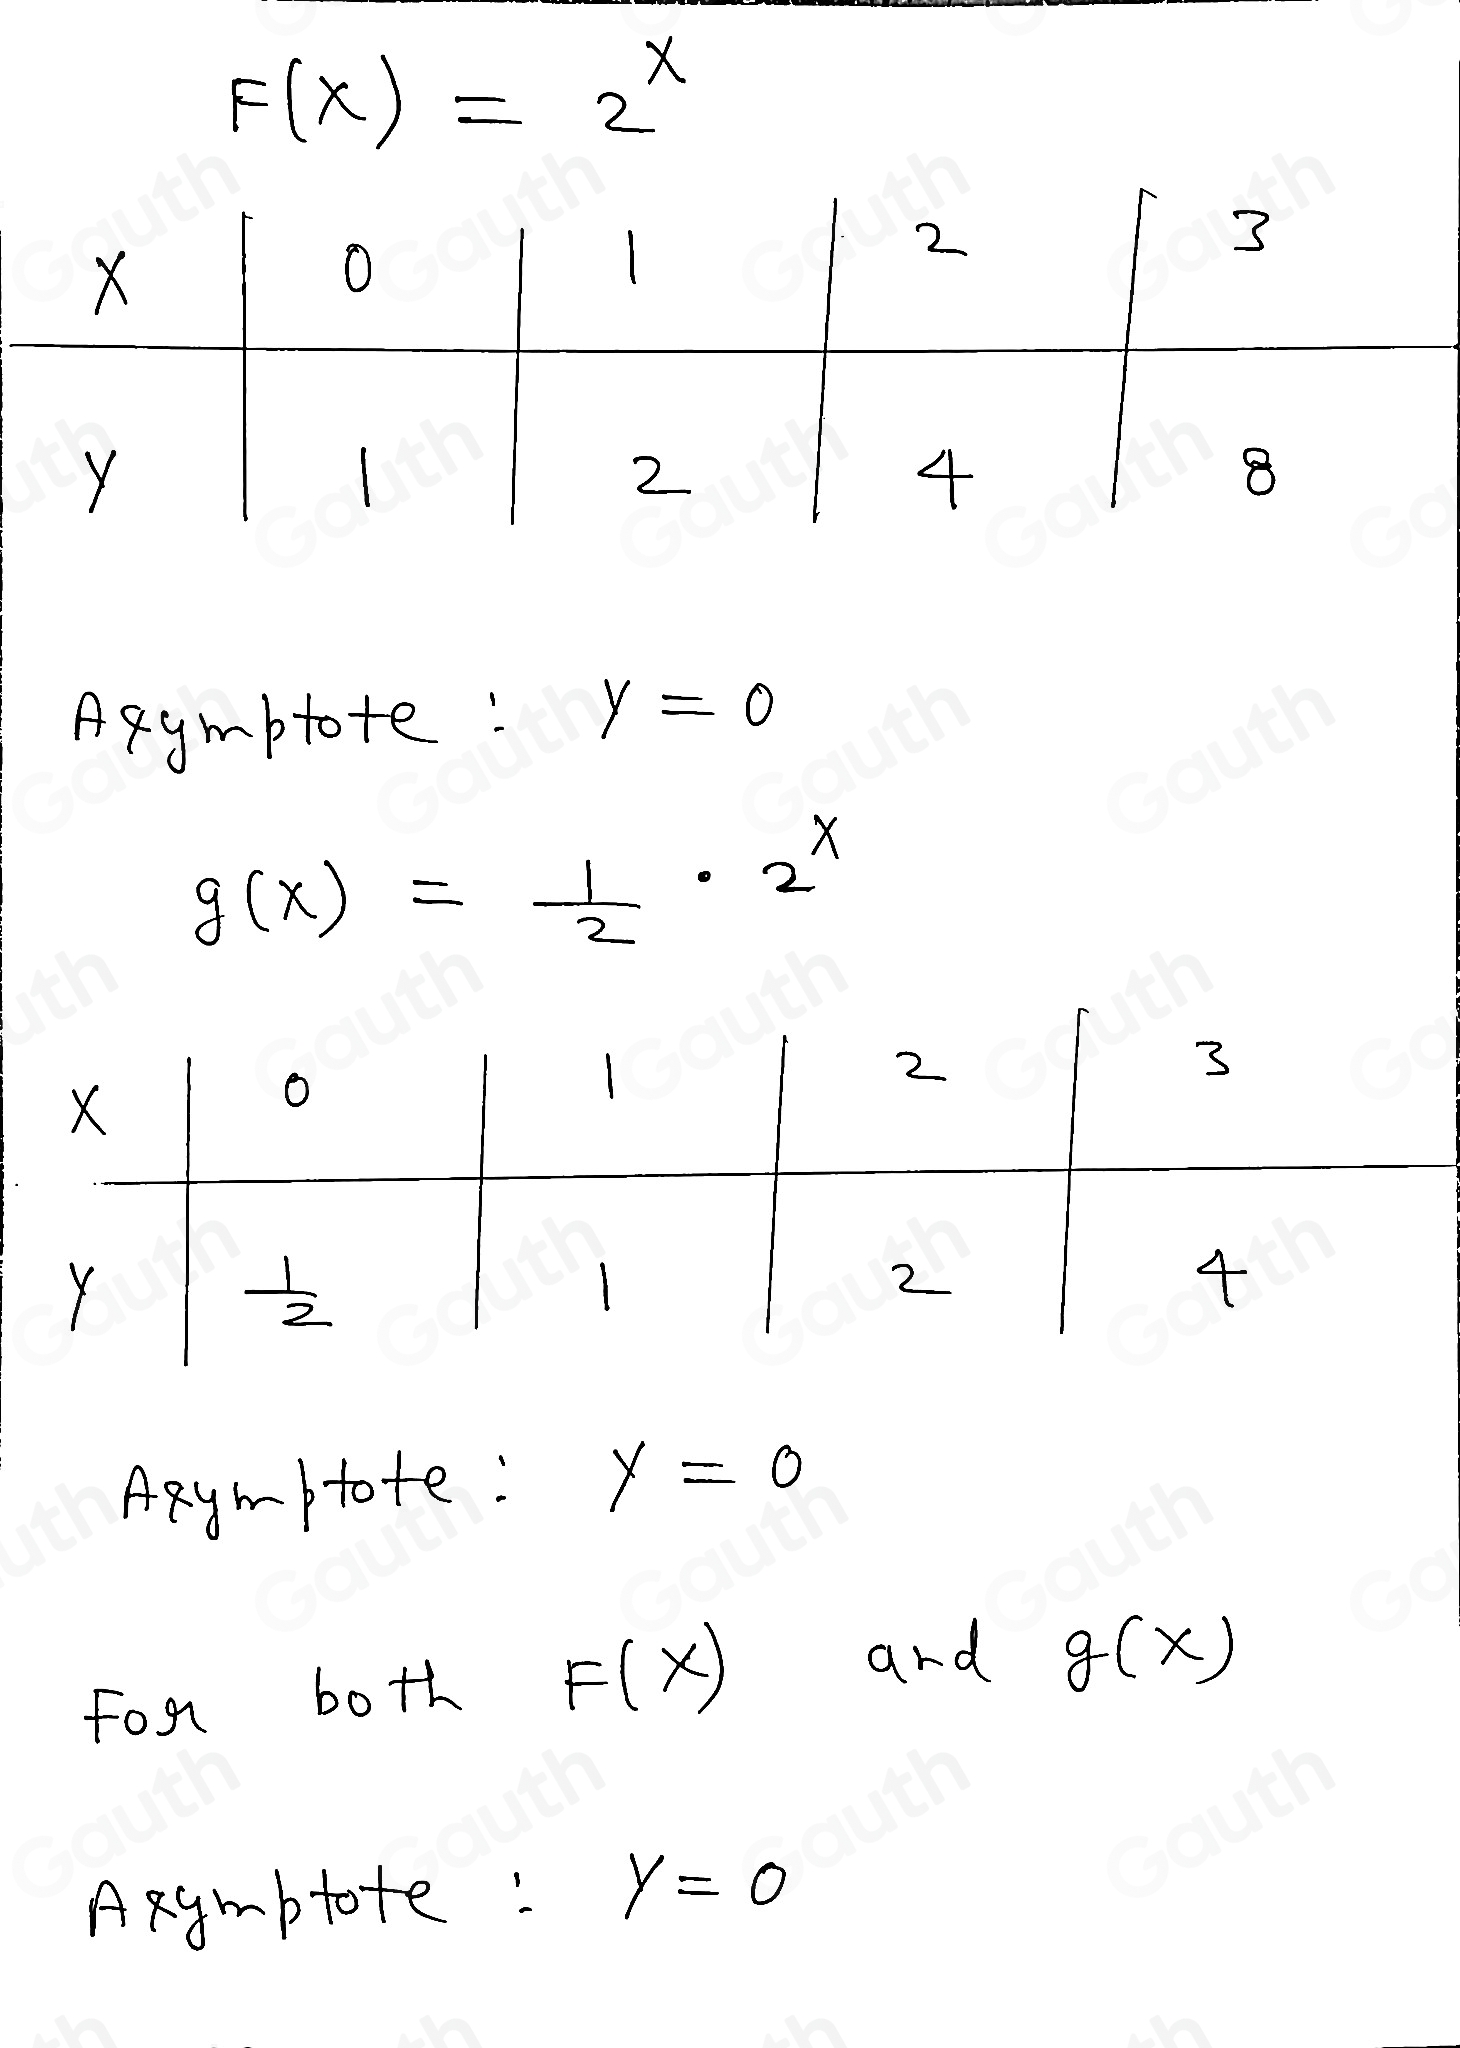 F(x) = 2^x
X | 0 | 1 | 2 | 3
Y | 1 | 2 | 4 | 8
Asymptote : y = 0
g(x) = 1/2 · 2^x
X | 0 | 1 | 2 | 3
Y | 1/2 | 1 | 2 | 4
Asymptote : y = 0
For both F(x) and g(x)
Asymptote : y = 0
Gauth